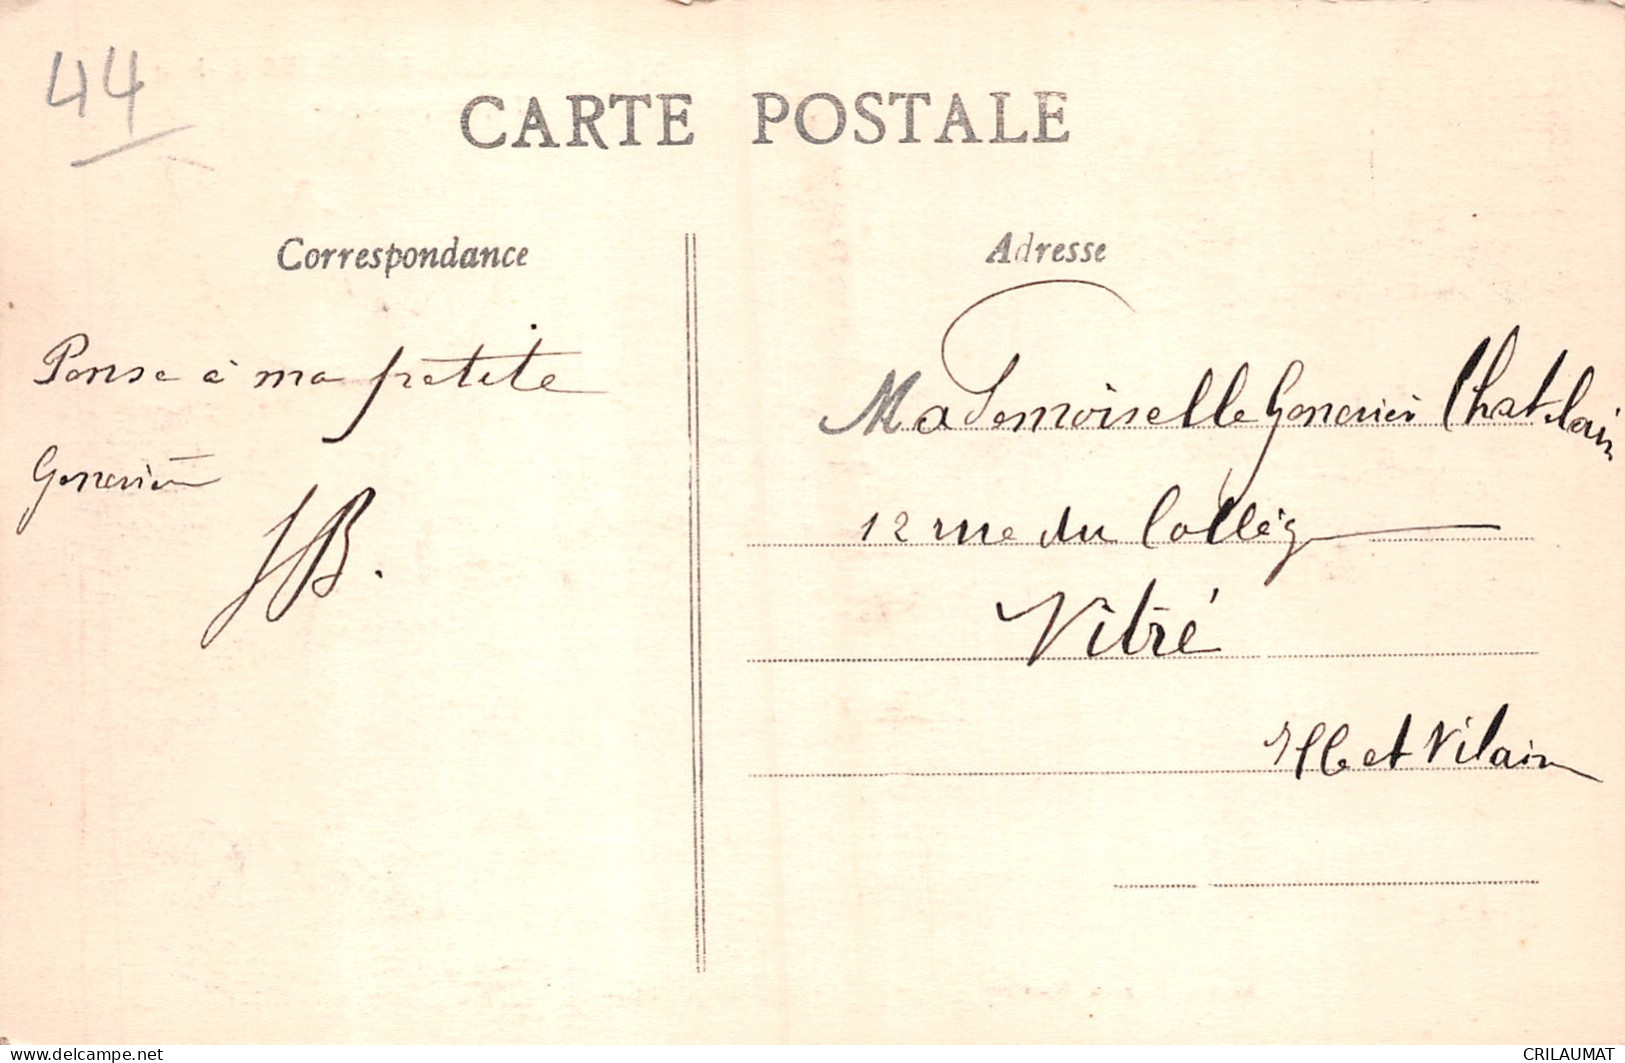 44
CARTE POSTALE
Correspondance
Adresse
Pense à ma petite
Geneviève
JB.
Mademoiselle Geneviève Chatelain
12 rue du Collège
Vitré
Ille et Vilaine
https://www.delcampe.net
CRILAUMAT